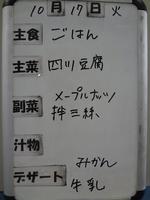 10月17日 火
主食 ごはん
主菜 四川豆腐
副菜 メープルナッツ
拌三絲
汁物
みかん
デザート 牛乳